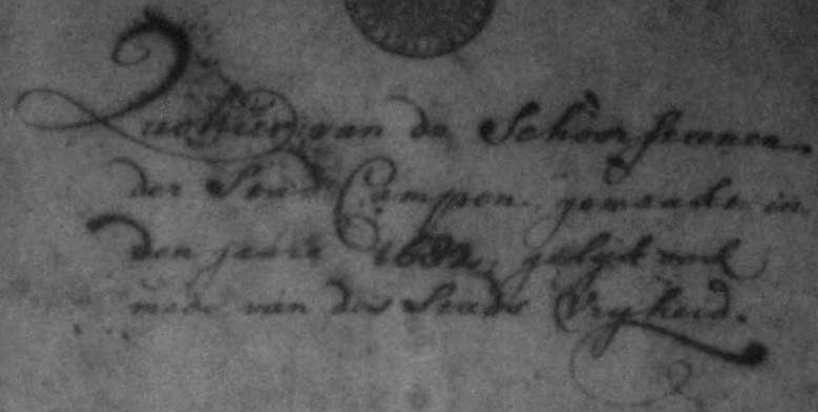 Quohier van de Schoorsteenen
der Stad Campen gemaakt in
den jaare 1682, gelijk meede
mede van der Stads Vryheid.